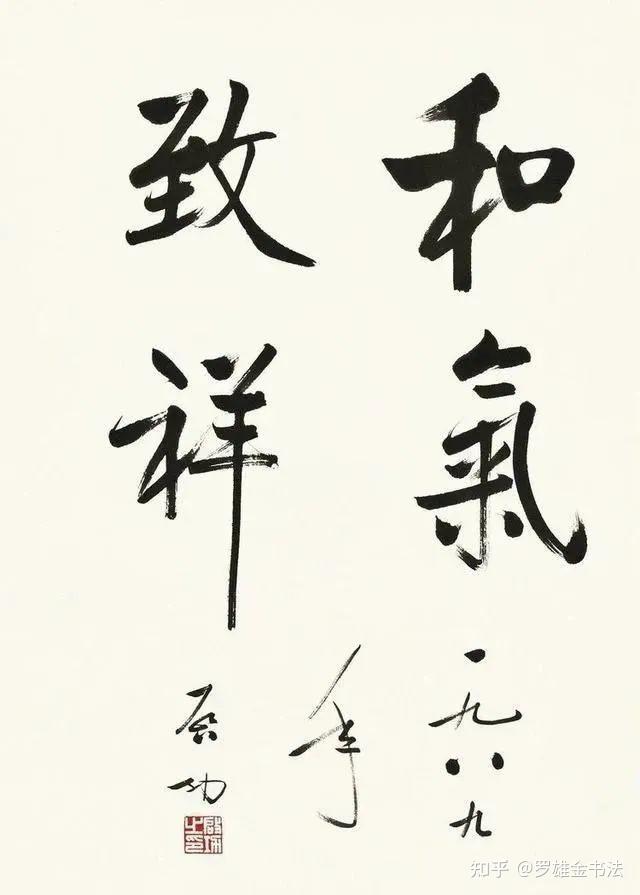 和氣
致祥
一九八九
年
启功
啟功之印
知乎 @罗雄金书法